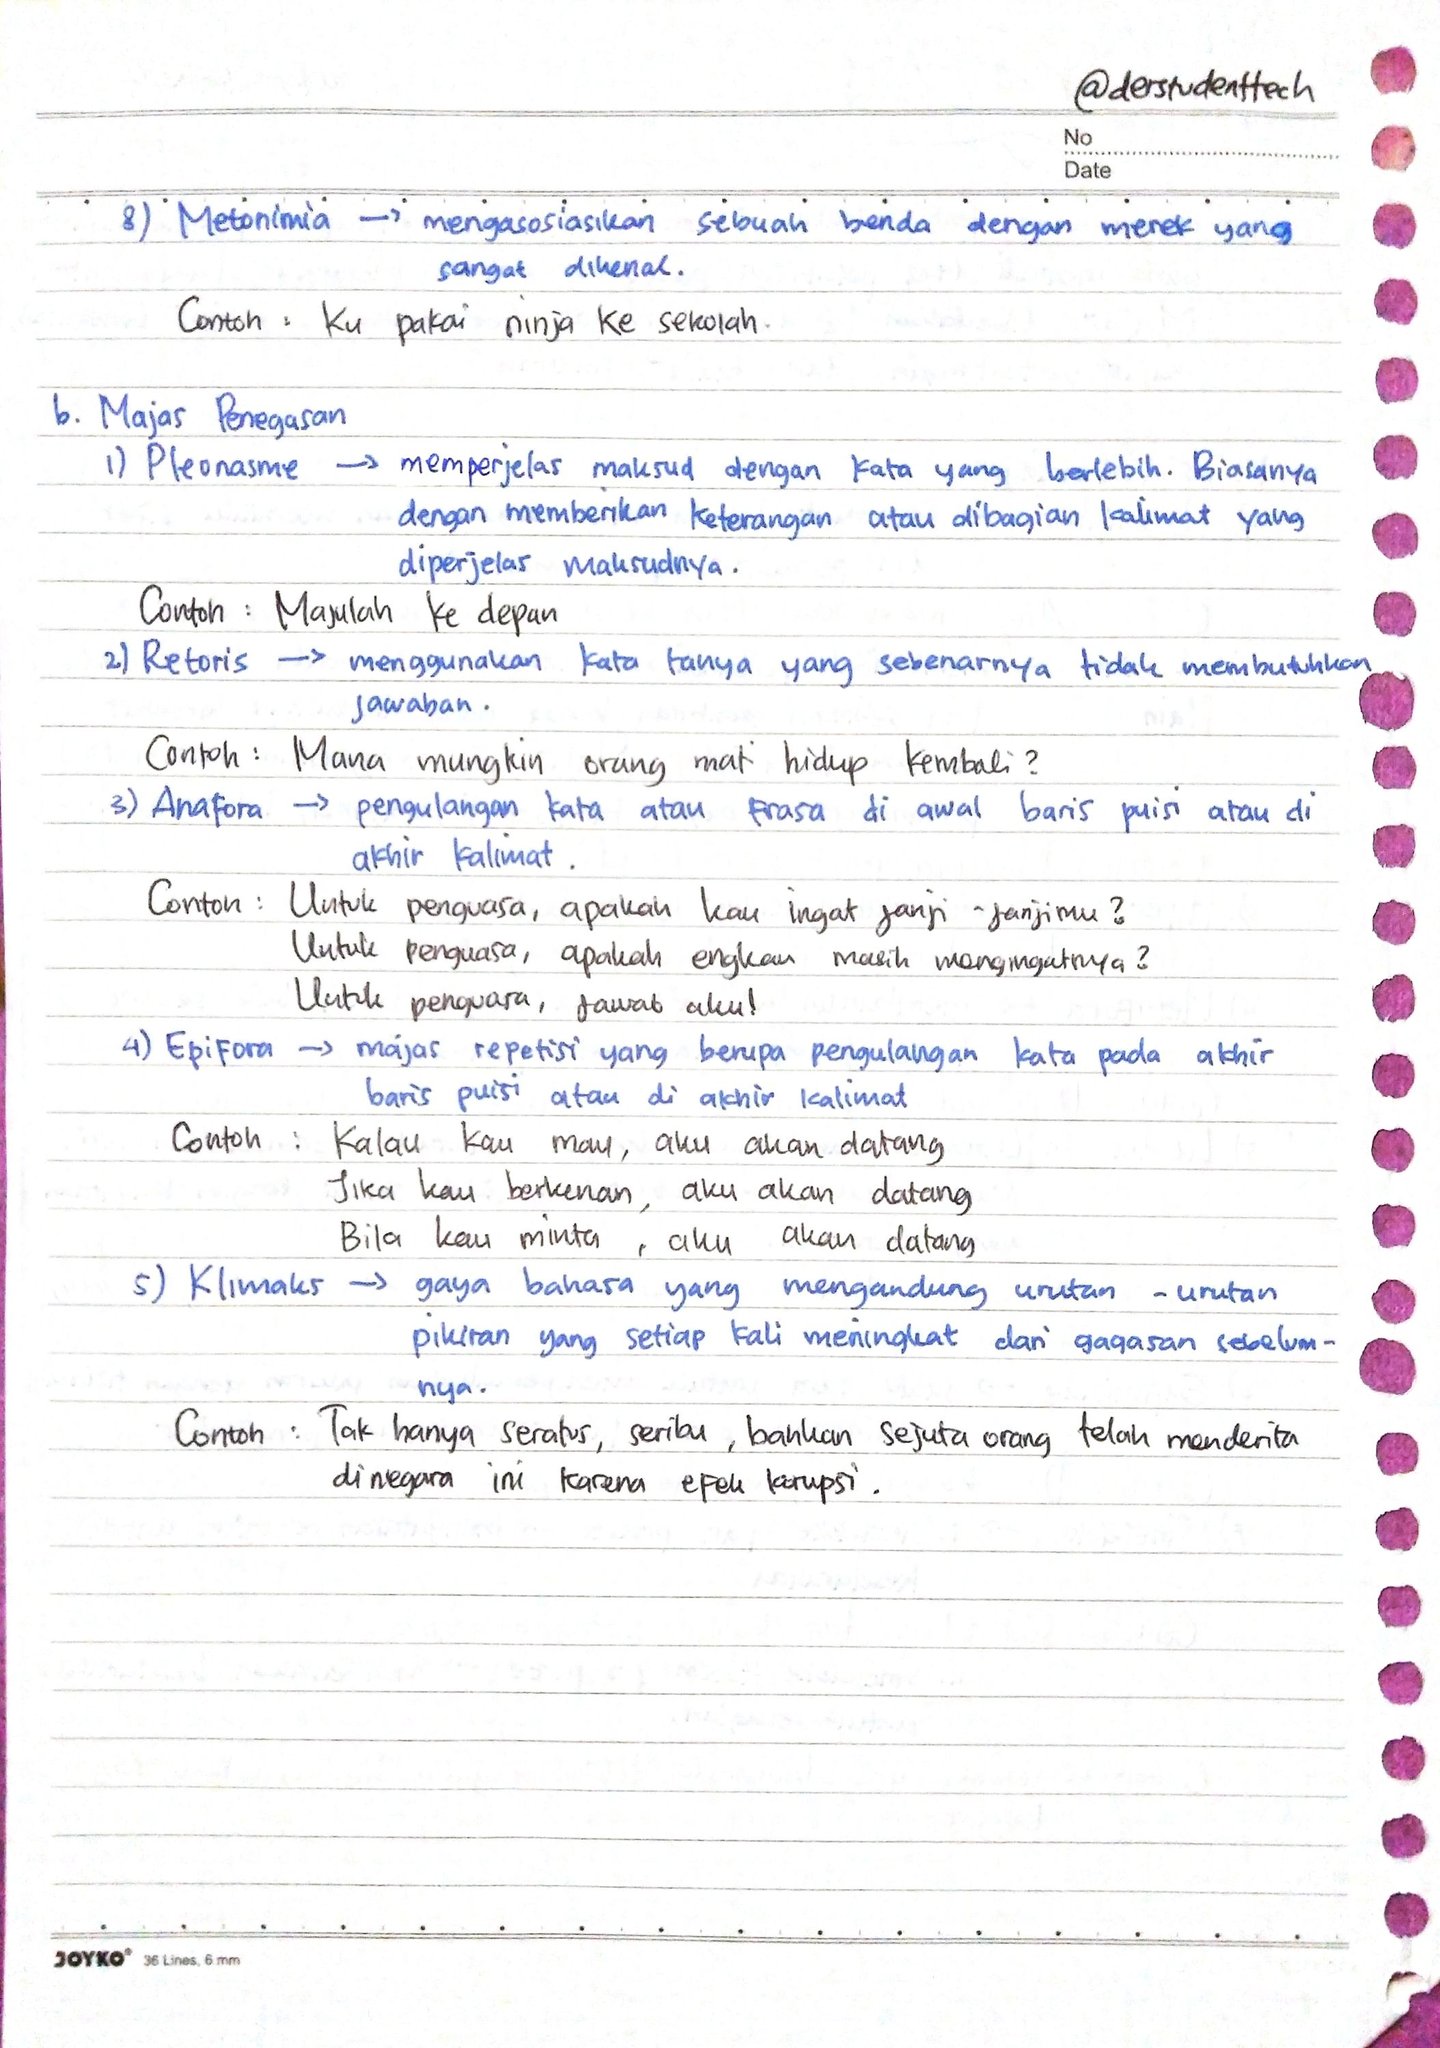 @derstudenttech
No
Date
8) Metonimia → mengasosiasikan sebuah benda dengan merek yang
sangat dikenal.
Contoh : Ku pakai ninja ke sekolah.
b. Majas Penegasan
1) Pleonasme → memperjelas maksud dengan kata yang berlebih. Biasanya
dengan memberikan keterangan atau dibagian kalimat yang
diperjelas maksudnya.
Contoh : Majulah ke depan
2) Retoris → menggunakan kata tanya yang sebenarnya tidak membutuhkan
jawaban.
Contoh : Mana mungkin orang mati hidup kembali?
3) Anafora → pengulangan kata atau frasa di awal baris puisi atau di
akhir kalimat.
Contoh : Untuk penguasa, apakah kau ingat janji - janjimu?
Untuk penguasa, apakah engkau masih mengingatnya?
Untuk penguasa, jawab aku!
4) Epifora → majas repetisi yang berupa pengulangan kata pada akhir
baris puisi atau di akhir kalimat
Contoh : Kalau kau mau, aku akan datang
Jika kau berkenan, aku akan datang
Bila kau minta, aku akan datang
5) Klimaks → gaya bahasa yang mengandung urutan - urutan
pikiran yang setiap kali meningkat dari gagasan sebelum-
nya.
Contoh : Tak hanya seratus, seribu, bahkan sejuta orang telah menderita
dinegara ini karena efek korupsi.
JOYKO® 36 Lines, 6 mm